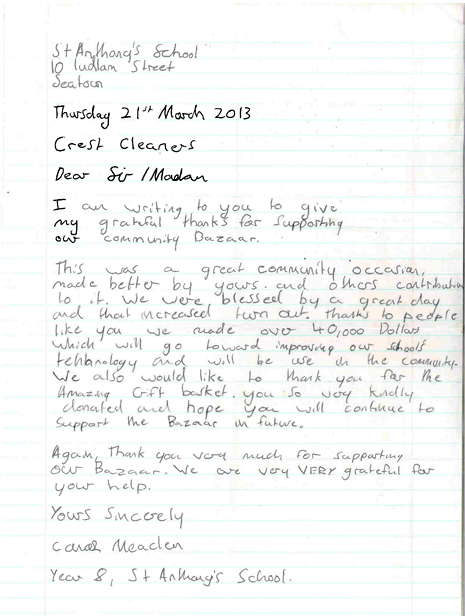 St Anthony's School
10 Ludlam Street
Seatoun
Thursday 21st March 2013
Crest Cleaners
Dear Sir /Madam
I am writing to you to give
my grateful thanks for supporting
our community Bazaar.
This was a great community occasion,
made better by yours and others contribution
to it. We were blessed by a great day
and that increased turn out. thanks to people
like you we made over 40,000 Dollars
which will go toward improving our schools
tehbnology and will be use in the community.
We also would like to thank you for the
Amazing Gift basket. you so very kindly
donated and hope you will continue to
support the Bazaar in future.
Again, thank you very much for supporting
our Bazaar. We are very VERY grateful for
your help.
Yours Sincerely
Meaclen
Year 8, St Anthony's School.